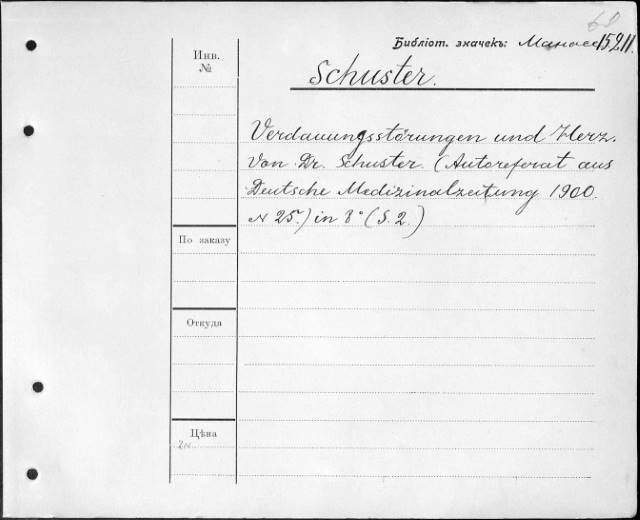 68
Библіот. значекъ: Манасс 15211.
Инв.
№
Schuster.
Verdauungsstörungen und Herz.
Von Dr. Schuster. (Autoreferat aus
Deutsche Medizinalzeitung 1900.
N 25.) in 8° (S. 2.)
По заказу
Откуда
Цѣна